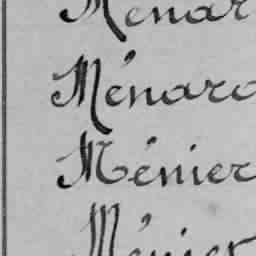 Ménar
Ménard
Ménier
Ménier